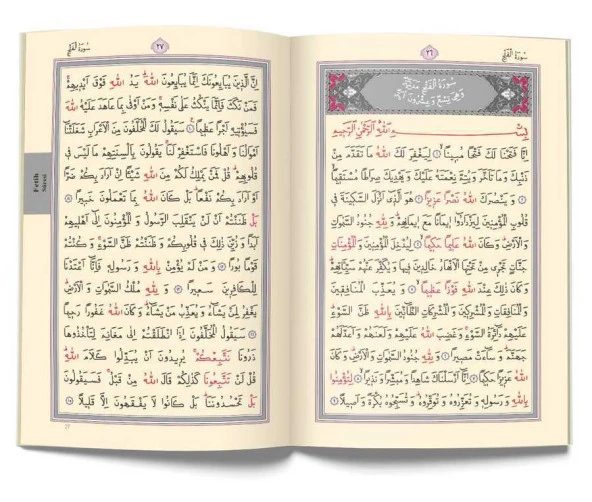 سُورَةُ الْفَتْحِ
٢٦
سُورَةُ الْفَتْحِ مَدَنِيَّةٌ
وَهِيَ تِسْعٌ وَعِشْرُونَ آيَةً
بِسْمِ اللّٰهِ الرَّحْمٰنِ الرَّحِيمِ
اِنَّا فَتَحْنَا لَكَ فَتْحًا مُبِينًا ﴿١﴾ لِيَغْفِرَ لَكَ اللّٰهُ مَا تَقَدَّمَ مِنْ
ذَنْبِكَ وَمَا تَاَخَّرَ وَيُتِمَّ نِعْمَتَهُ عَلَيْكَ وَيَهْدِيَكَ صِرَاطًا مُسْتَقِيمًا
﴿٢﴾ وَيَنْصُرَكَ اللّٰهُ نَصْرًا عَزِيزًا ﴿٣﴾ هُوَ الَّذِي اَنْزَلَ السَّكِينَةَ فِي
قُلُوبِ الْمُؤْمِنِينَ لِيَزْدَادُوا اِيمَانًا مَعَ اِيمَانِهِمْ وَلِلّٰهِ جُنُودُ السَّمٰوَاتِ
وَالْاَرْضِ وَكَانَ اللّٰهُ عَلِيمًا حَكِيمًا ﴿٤﴾ لِيُدْخِلَ الْمُؤْمِنِينَ وَالْمُؤْمِنَاتِ
جَنَّاتٍ تَجْرِي مِنْ تَحْتِهَا الْاَنْهَارُ خَالِدِينَ فِيهَا وَيُكَفِّرَ عَنْهُمْ سَيِّـَٔاتِهِمْ
وَكَانَ ذٰلِكَ عِنْدَ اللّٰهِ فَوْزًا عَظِيمًا ﴿٥﴾ وَيُعَذِّبَ الْمُنَافِقِينَ
وَالْمُنَافِقَاتِ وَالْمُشْرِكِينَ وَالْمُشْرِكَاتِ الظَّانِّينَ بِاللّٰهِ ظَنَّ السَّوْءِ
عَلَيْهِمْ دَائِرَةُ السَّوْءِ وَغَضِبَ اللّٰهُ عَلَيْهِمْ وَلَعَنَهُمْ وَاَعَدَّ لَهُمْ
جَهَنَّمَ وَسَاءَتْ مَصِيرًا ﴿٦﴾ وَلِلّٰهِ جُنُودُ السَّمٰوَاتِ وَالْاَرْضِ وَكَانَ
اللّٰهُ عَزِيزًا حَكِيمًا ﴿٧﴾ اِنَّا اَرْسَلْنَاكَ شَاهِدًا وَمُبَشِّرًا وَنَذِيرًا ﴿٨﴾ لِتُؤْمِنُوا
بِاللّٰهِ وَرَسُولِهِ وَتُعَزِّرُوهُ وَتُوَقِّرُوهُ وَتُسَبِّحُوهُ بُكْرَةً وَاَصِيلًا ﴿٩﴾
سُورَةُ الْفَتْحِ
٢٧
اِنَّ الَّذِينَ يُبَايِعُونَكَ اِنَّمَا يُبَايِعُونَ اللّٰهَ يَدُ اللّٰهِ فَوْقَ اَيْدِيهِمْ
فَمَنْ نَكَثَ فَاِنَّمَا يَنْكُثُ عَلٰى نَفْسِهِ وَمَنْ اَوْفٰى بِمَا عَاهَدَ عَلَيْهُ اللّٰهَ
فَسَيُؤْتِيهِ اَجْرًا عَظِيمًا ﴿١٠﴾ سَيَقُولُ لَكَ الْمُخَلَّفُونَ مِنَ الْاَعْرَابِ شَغَلَتْنَا
اَمْوَالُنَا وَاَهْلُونَا فَاسْتَغْفِرْ لَنَا يَقُولُونَ بِاَلْسِنَتِهِمْ مَا لَيْسَ فِي
قُلُوبِهِمْ قُلْ فَمَنْ يَمْلِكُ لَكُمْ مِنَ اللّٰهِ شَيْـًٔا اِنْ اَرَادَ بِكُمْ ضَرًّا
اَوْ اَرَادَ بِكُمْ نَفْعًا بَلْ كَانَ اللّٰهُ بِمَا تَعْمَلُونَ خَبِيرًا ﴿١١﴾
بَلْ ظَنَنْتُمْ اَنْ لَنْ يَنْقَلِبَ الرَّسُولُ وَالْمُؤْمِنُونَ اِلٰى اَهْلِيهِمْ
اَبَدًا وَزُيِّنَ ذٰلِكَ فِي قُلُوبِكُمْ وَظَنَنْتُمْ ظَنَّ السَّوْءِ وَكُنْتُمْ
قَوْمًا بُورًا ﴿١٢﴾ وَمَنْ لَمْ يُؤْمِنْ بِاللّٰهِ وَرَسُولِهِ فَاِنَّا اَعْتَدْنَا
لِلْكَافِرِينَ سَعِيرًا ﴿١٣﴾ وَلِلّٰهِ مُلْكُ السَّمٰوَاتِ وَالْاَرْضِ
يَغْفِرُ لِمَنْ يَشَاءُ وَيُعَذِّبُ مَنْ يَشَاءُ وَكَانَ اللّٰهُ غَفُورًا رَحِيمًا
﴿١٤﴾ سَيَقُولُ الْمُخَلَّفُونَ اِذَا انْطَلَقْتُمْ اِلٰى مَغَانِمَ لِتَاْخُذُوهَا
ذَرُونَا نَتَّبِعْكُمْ يُرِيدُونَ اَنْ يُبَدِّلُوا كَلَامَ اللّٰهِ
قُلْ لَنْ تَتَّبِعُونَا كَذٰلِكُمْ قَالَ اللّٰهُ مِنْ قَبْلُ فَسَيَقُولُونَ
بَلْ تَحْسُدُونَنَا بَلْ كَانُوا لَا يَفْقَهُونَ اِلَّا قَلِيلًا ﴿١٥﴾
Fetih
Sûresi